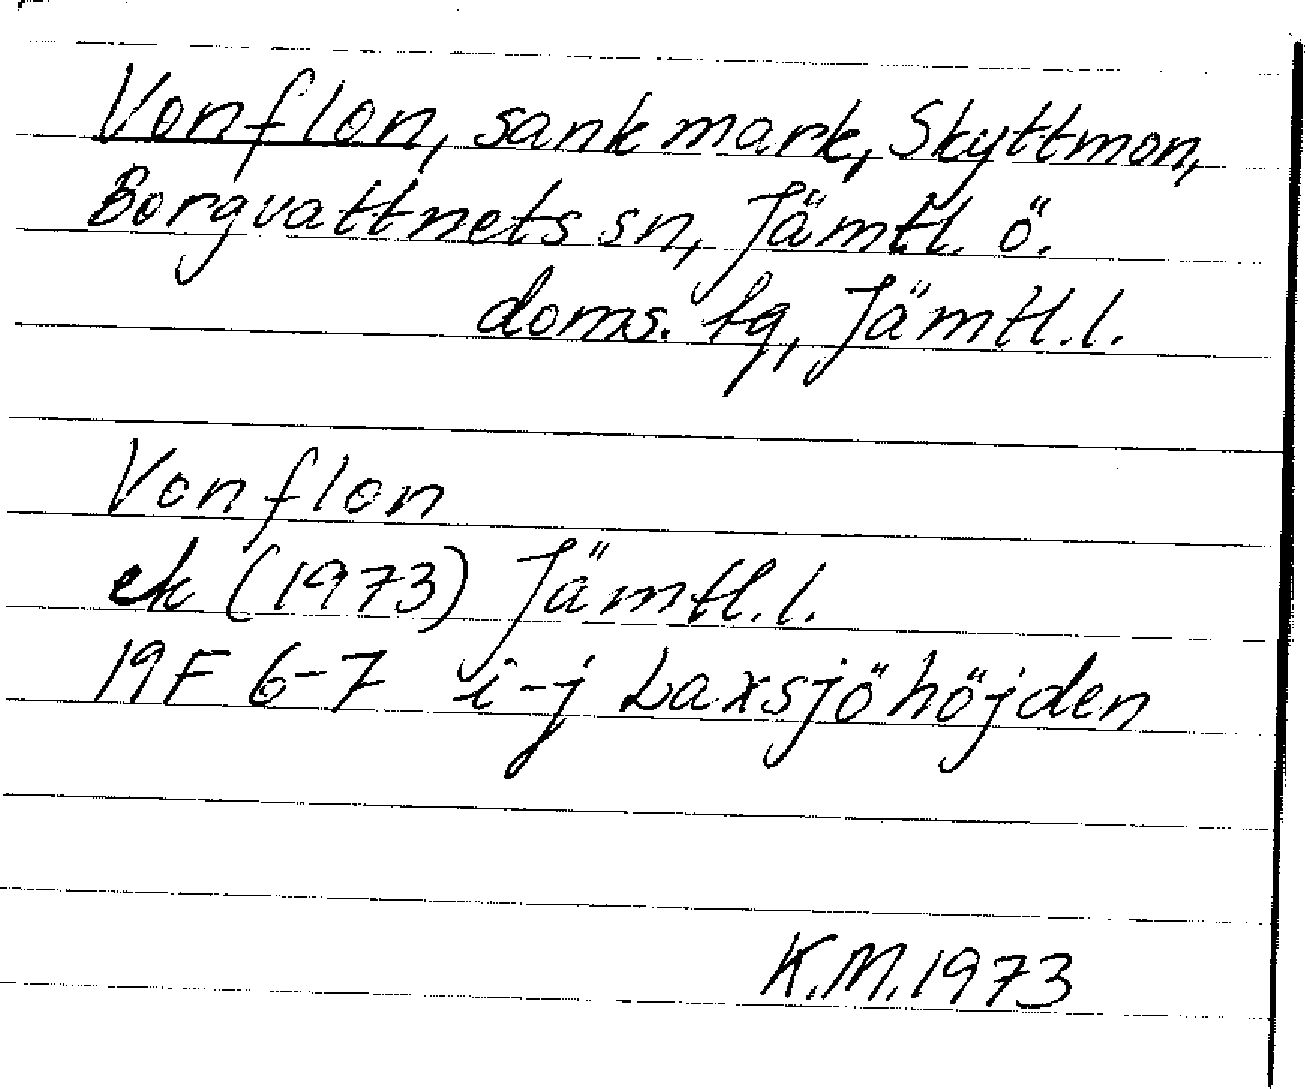 Vonflon, sank mark, Skyttmon,
Borgvattnets sn, Jämtl. ö.
doms. tg, Jämtl. l.
Vonflon
ek (1973) Jämtl. l.
19F 6-7 i-j Laxsjöhöjden
K.M. 1973